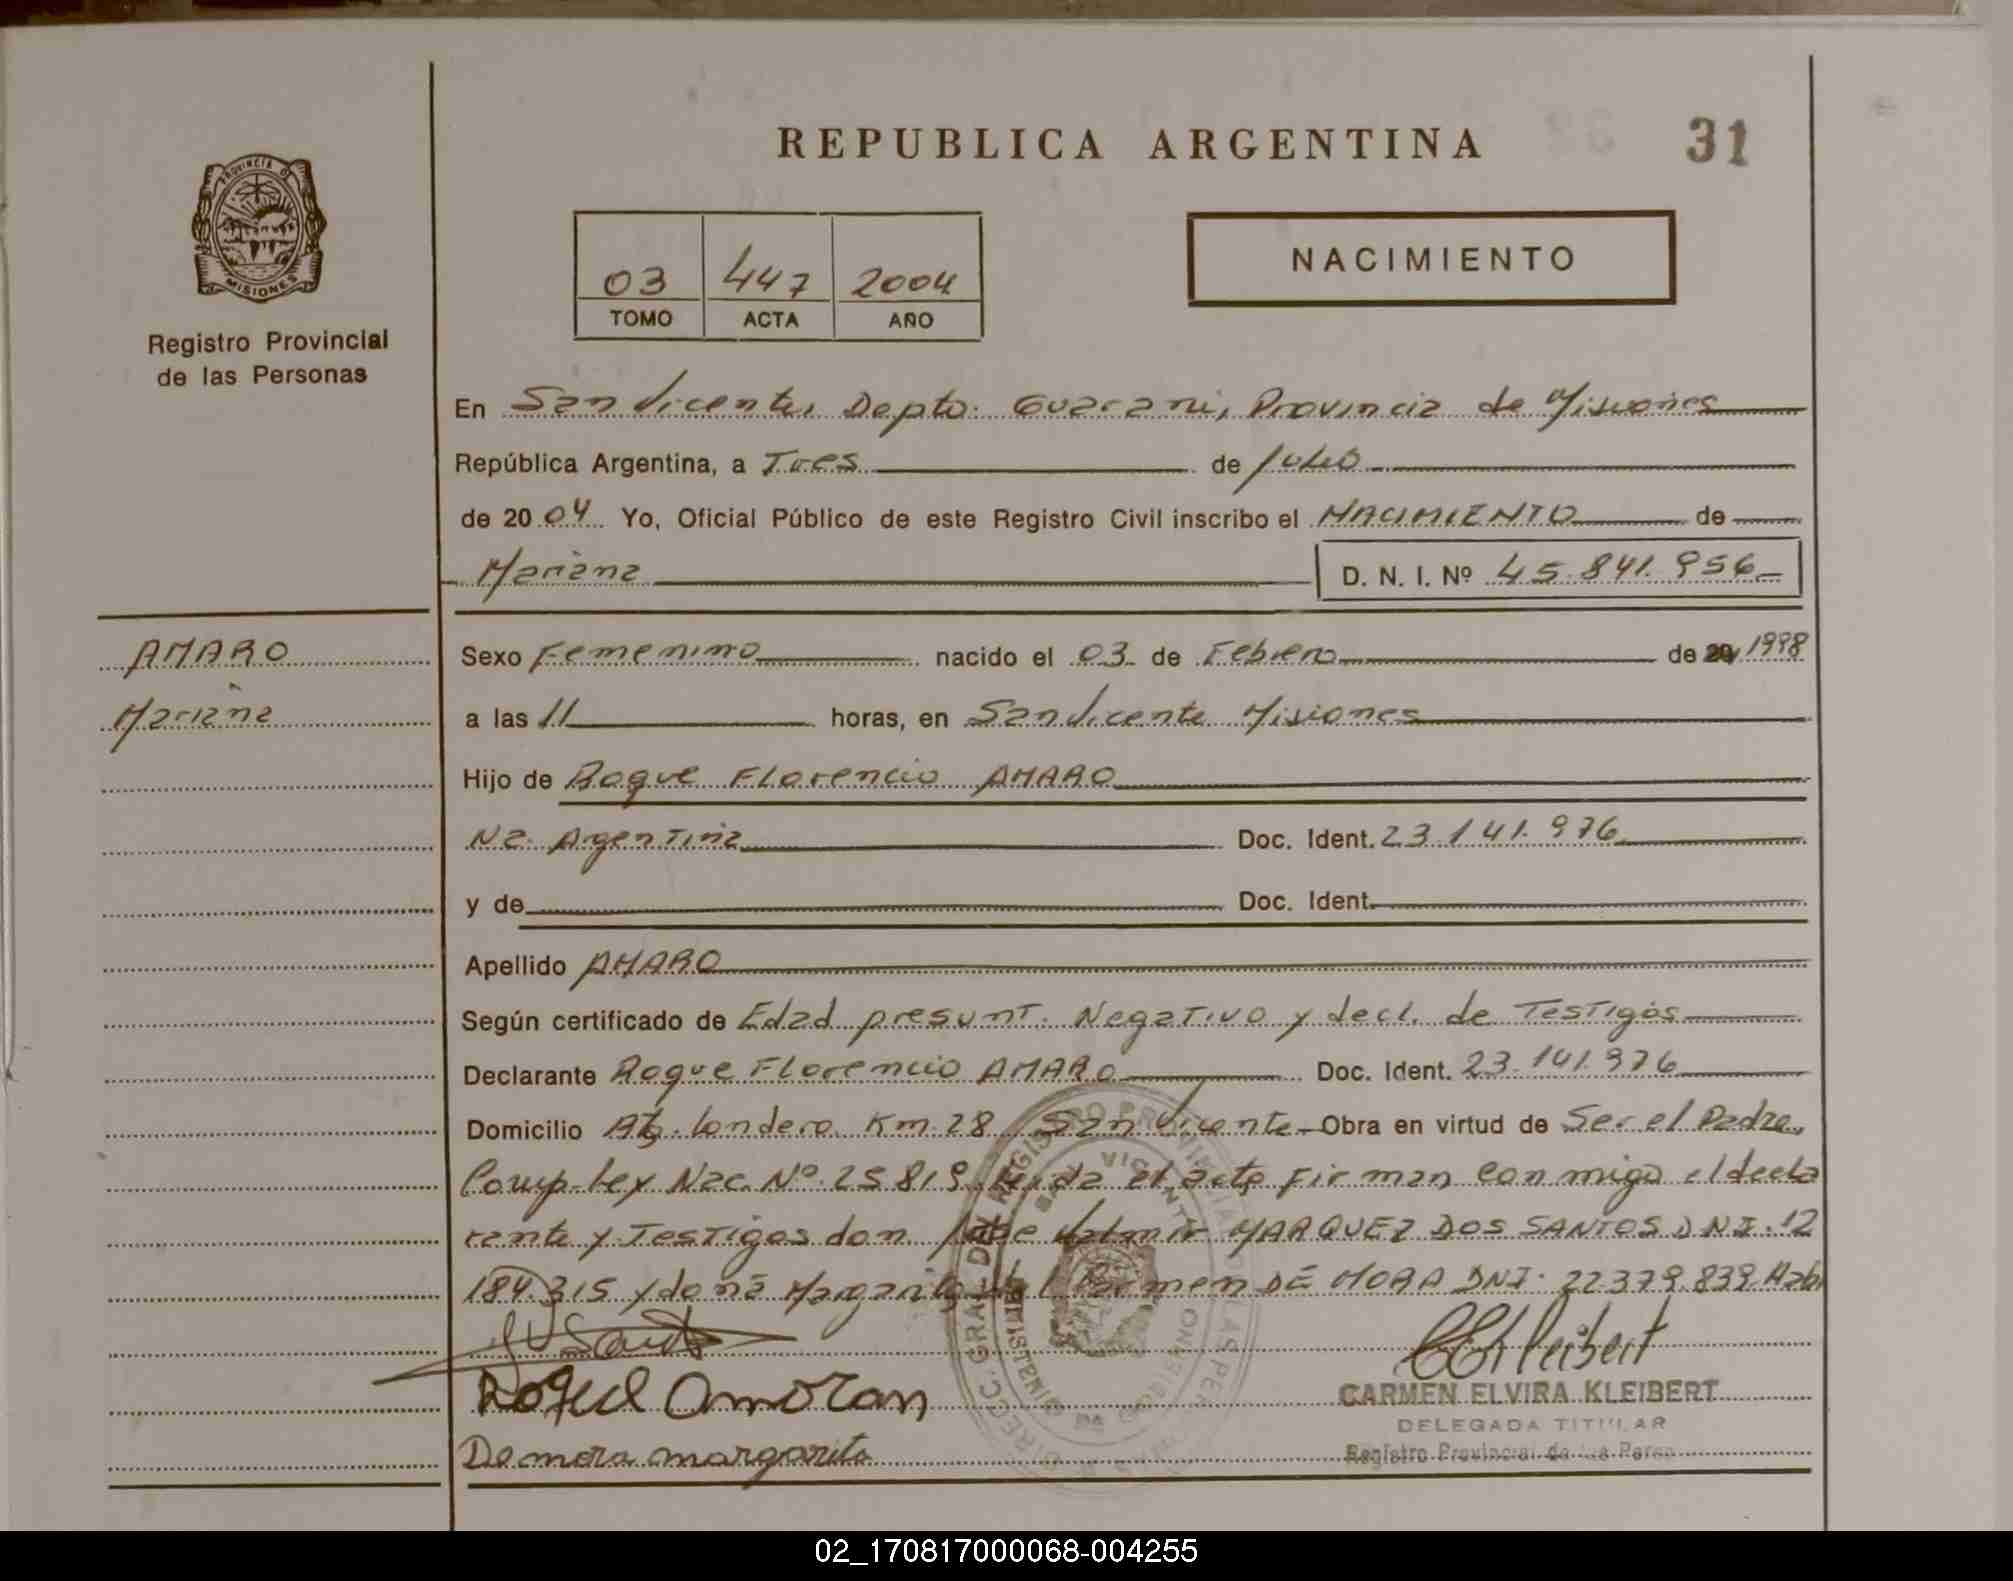 REPUBLICA ARGENTINA
31
PROVINCIA DE MISIONES
Registro Provincial
de las Personas
03 447 2004
TOMO ACTA AÑO
NACIMIENTO
En San Vicente, Depto. Guarani, Provincia de Misiones
República Argentina, a Tres de Julio
de 2004 Yo, Oficial Público de este Registro Civil inscribo el NACIMIENTO de
Mariana D. N. I. Nº 45.841.956
AMARO
Mariana
Sexo Femenino nacido el 03 de Febrero de 1998
a las 11 horas, en San Vicente Misiones
Hijo de Roque Florencio AMARO
Na. Argentina Doc. Ident. 23.141.976
y de Doc. Ident.
Apellido AMARO
Según certificado de Edad presunt. Negativo y decl. de Testigos
Declarante Roque Florencio AMARO Doc. Ident. 23.141.976
Domicilio Londero Km. 28 San Vicente Obra en virtud de Ser el Padre,
Comp. Ley Nac. Nº 25.819 el acta firman conmigo el decla
rante y Testigos don MARQUEZ DOS SANTOS D.N.I. 12
184.315 y doña Margarita del Carmen DE MORA DNI. 22.379.839.
CARMEN ELVIRA KLEIBERT
DELEGADA TITULAR
Registro Provincial de las Perso
De mora margarita
02_170817000068-004255